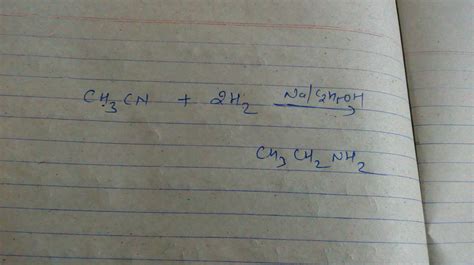 CH₃CN + 2H₂ Na/C₂H₅OH →
CH₃CH₂NH₂